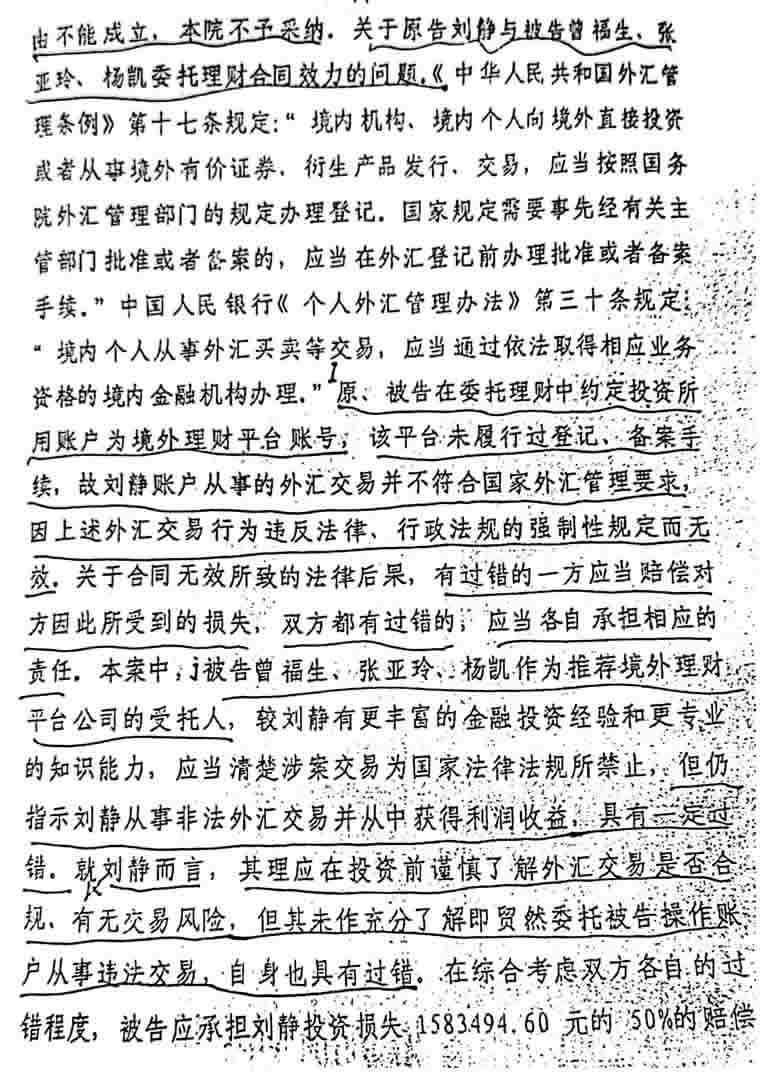 由不能成立，本院不予采纳。关于原告刘静与被告曾福生、张
亚玲、杨凯委托理财合同效力的问题。《中华人民共和国外汇管
理条例》第十七条规定：“境内机构、境内个人向境外直接投资
或者从事境外有价证券、衍生产品发行、交易，应当按照国务
院外汇管理部门的规定办理登记。国家规定需要事先经有关主
管部门批准或者备案的，应当在外汇登记前办理批准或者备案
手续。”中国人民银行《个人外汇管理办法》第三十条规定：
“境内个人从事外汇买卖等交易，应当通过依法取得相应业务
资格的境内金融机构办理。”原、被告在委托理财中约定投资所
用账户为境外理财平台账号，该平台未履行过登记、备案手
续，故刘静账户从事的外汇交易并不符合国家外汇管理要求，
因上述外汇交易行为违反法律、行政法规的强制性规定而无
效。关于合同无效所致的法律后果，有过错的一方应当赔偿对
方因此所受到的损失，双方都有过错的，应当各自承担相应的
责任。本案中，被告曾福生、张亚玲、杨凯作为推荐境外理财
平台公司的受托人，较刘静有更丰富的金融投资经验和更专业
的知识能力，应当清楚涉案交易为国家法律法规所禁止，但仍
指示刘静从事非法外汇交易并从中获得利润收益，具有一定过
错。就刘静而言，其理应在投资前谨慎了解外汇交易是否合
规、有无交易风险，但其未作充分了解即贸然委托被告操作账
户从事违法交易，自身也具有过错。在综合考虑双方各自的过
错程度，被告应承担刘静投资损失1583494.60元的50%的赔偿